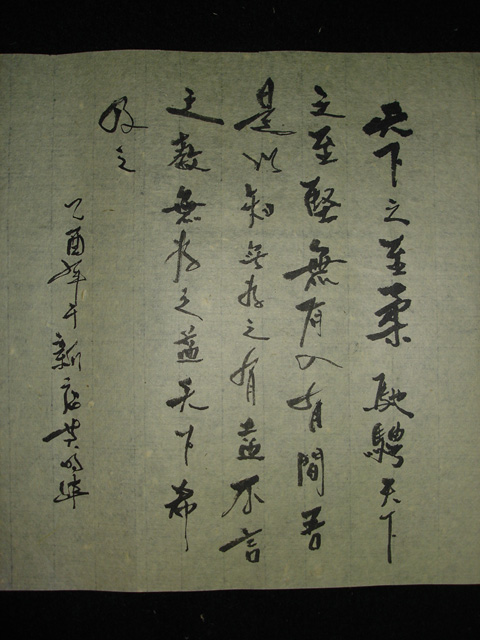 天下之至柔馳騁天下
之至堅無有入有間吾
是以知無為之有益不言
之教無為之益天下希
及之
乙酉年于新